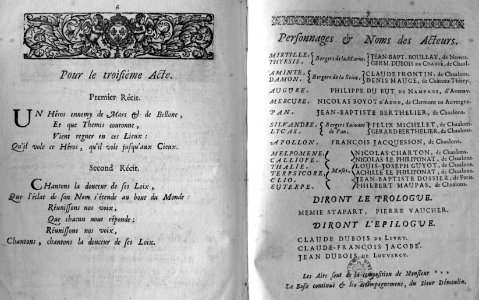 6
Pour le troisiéme Acte.
Premier Récit.
UN Héros ennemy de Mars & de Bellone,
Et que Themis couronne,
Vient regner en ces Lieux:
Qu'il vole ce Héros, qu'il vole jusqu'aux Cieux.
Second Récit.
Chantons la douceur de ses Loix,
Que l'éclat de son Nom s'étende au bout du Monde:
Réunissons nos voix,
Que chacun nous réponde;
Réunissons nos voix,
Chantons, chantons la douceur de ses Loix.
7
Personnages & Noms des Acteurs.
MIRTILLE. Bergers de la Marne. JEAN-BAPT. BOULLAY, de
THYRSIS. GERM. DUBOIS de
AMINTE, Bergers de la Seine. CLAUDE FRONTIN, de Chaalons.
DAMON. DENIS MAUGE, de Château Thierry.
AUGURE. PHILIPPE DU BUT de
MERCURE. NICOLAS BOYOT D'AVON, de Clermont en Auvergne.
PAN. JEAN-BAPTISTE BERTHELIER, de Chaalons.
SILVANDRE, Bergers Suivans FELIX MICHELET, de Chaalons.
LYCAS. de Pan. GERARD BERTHELIER, de Chaalons.
APOLLON. FRANÇOIS JACQUESSON, de Chaalons.
MELPOMENE, NICOLAS CHARTON, de Chaalons.
CALLIOPE, NICOLAS LE PHILIPONAT, de Chaalons.
THALIE, LOUIS-JOSEPH GUYOT, de Chaalons.
TERPSICORE, Muses. ACHILLE LE PHILIPONAT, de Chaalons.
CLIO, JEAN-BAPTISTE DOSSIER, de Paris.
EUTERPE. PHILBERT MAUPAS, de Chaalons.
DIRONT LE PROLOGUE.
MEMIE STAPART, PIERRE VAUCHER.
DIRONT L'EPILOGUE.
CLAUDE DUBOIS DE LIVRY.
CLAUDE-FRANÇOIS JACOBÉ.
JEAN DUBOIS DE
Les Airs sont de la composition de Monsieur ***
La Basse continuë & les accompagnemens, du Sieur Démoulin.